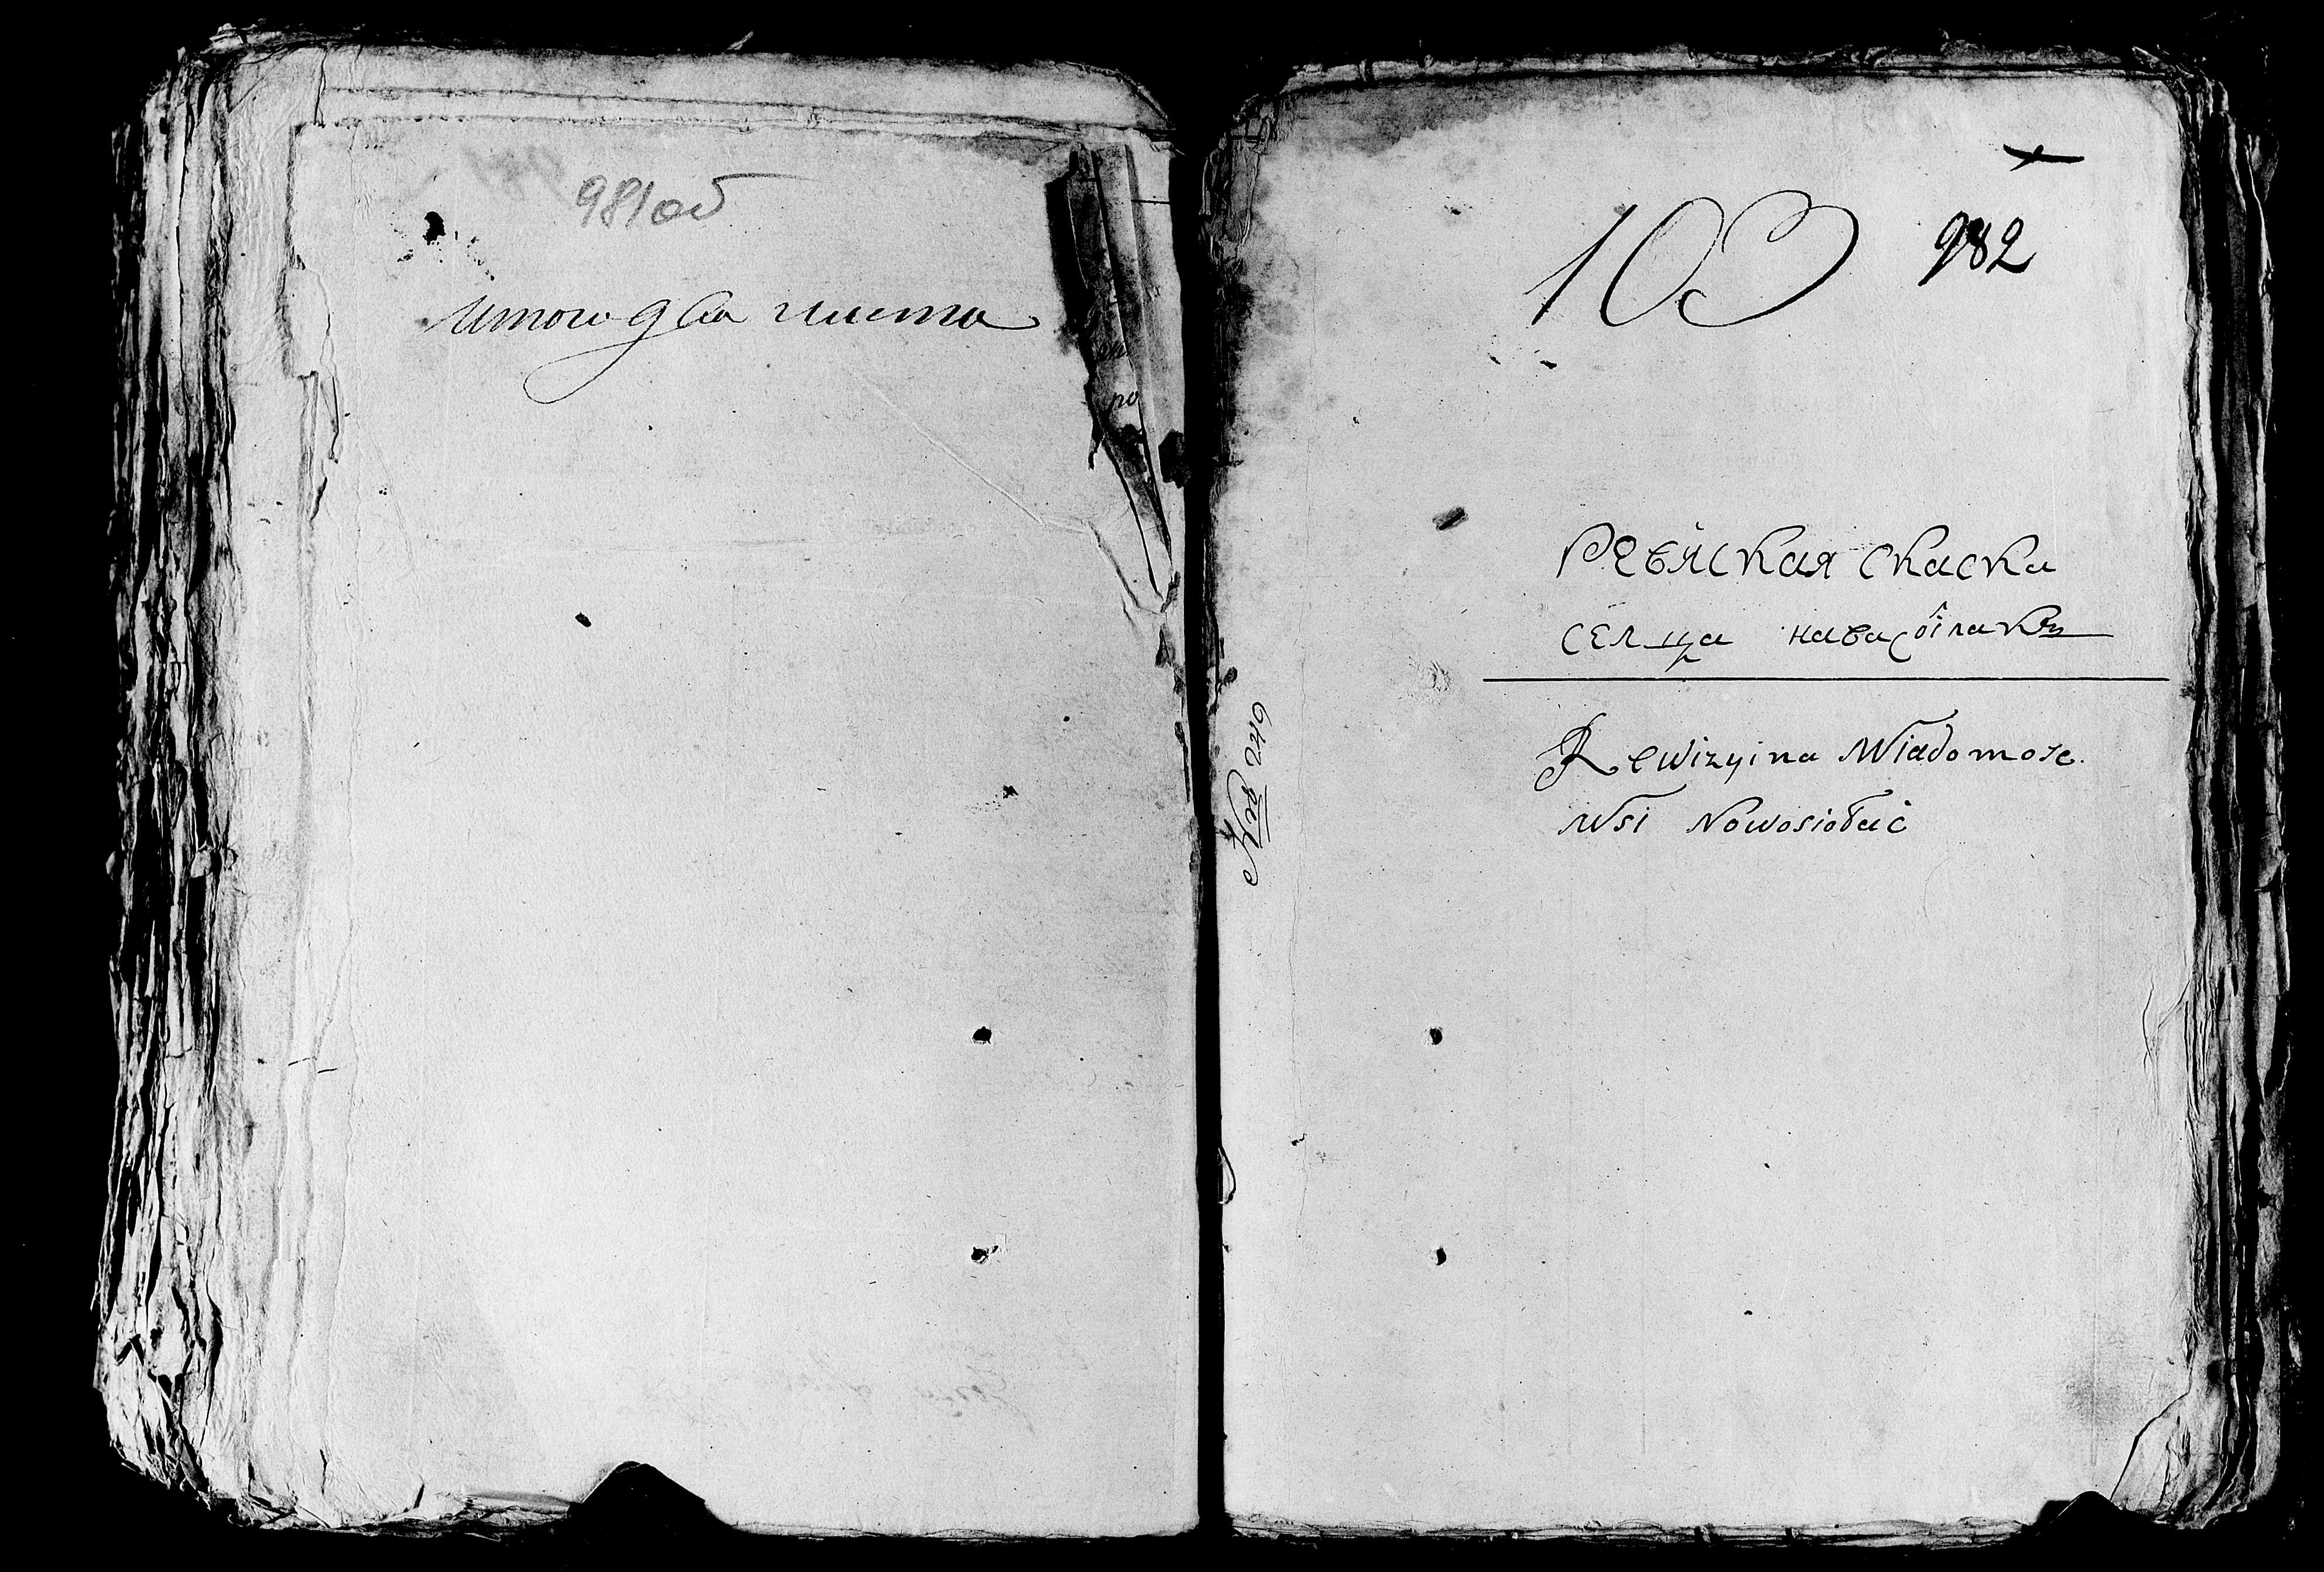 981об
итого два листа
ро
103
982
Ревиская скаска
селца навасюлакъ
Rewizyina Wiadomosc.
Wsi Nowosiołac
№ 249